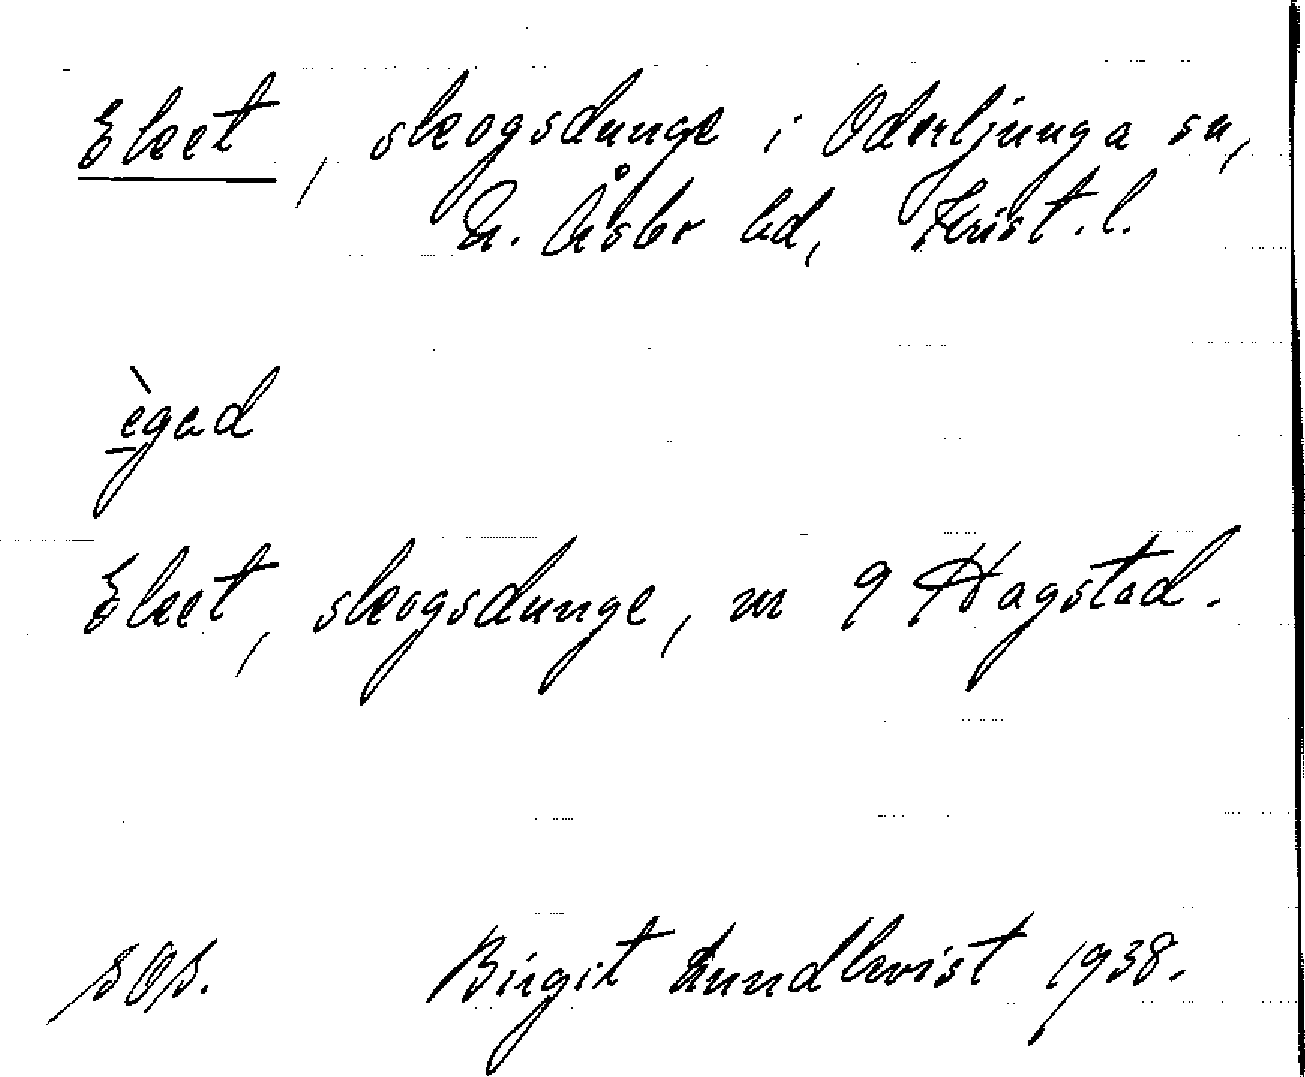 Eket, skogsdunge i Oderljunga sn,
N. Åsbo hd, Krist. l.
ègəd
Eket, skogsdunge, nr 9 Hagstad.
SOS. Birgit Lundkvist 1938.